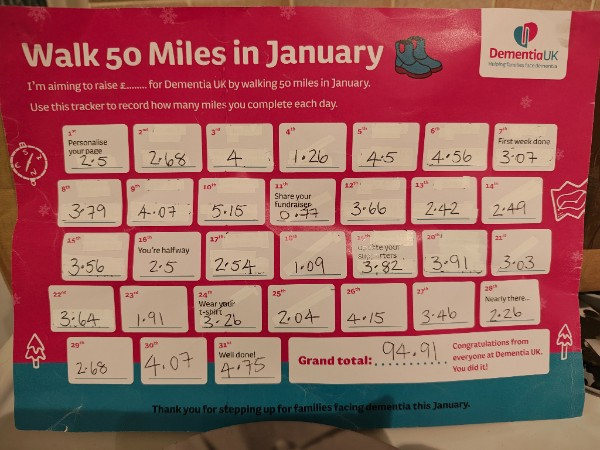 Walk 50 Miles in January
DementiaUK
Helping families face dementia
I'm aiming to raise £........ for Dementia UK by walking 50 miles in January.
Use this tracker to record how many miles you complete each day.
1st 2nd 3rd 4th 5th 6th 7th
Personalise your page First week done
2.5 2.68 4 1.26 4.5 4.56 3.07
8th 9th 10th 11th 12th 13th 14th
Share your fundraiser
3.79 4.07 5.15 0.77 3.66 2.42 2.49
15th 16th 17th 18th 19th 20th 21st
You're halfway Update your supporters
3.56 2.5 2.54 1.09 3.82 3.91 3.03
22nd 23rd 24th 25th 26th 27th 28th
Wear your t-shirt Nearly there...
3.64 1.91 3.26 2.04 4.15 3.46 2.26
29th 30th 31st
Well done!
2.68 4.07 4.75
Grand total: 94.91
Congratulations from
everyone at Dementia UK.
You did it!
Thank you for stepping up for families facing dementia this January.